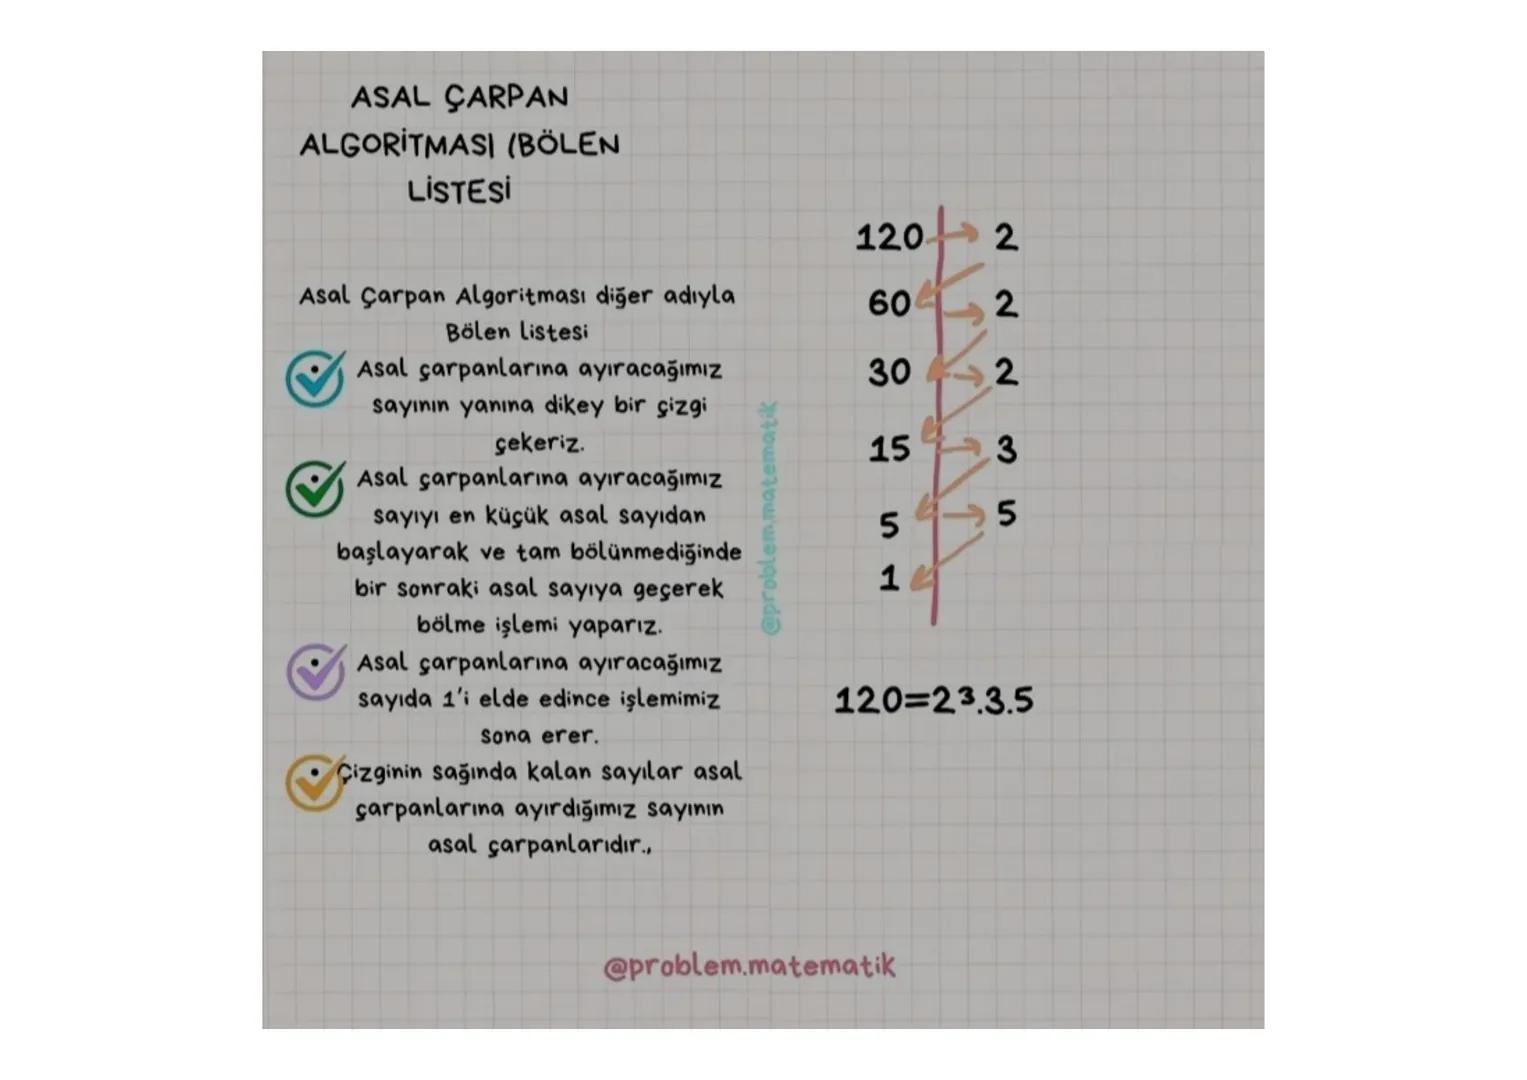 ASAL ÇARPAN
ALGORİTMASI (BÖLEN
LİSTESİ
Asal Çarpan Algoritması diğer adıyla
Bölen listesi
Asal çarpanlarına ayıracağımız
sayının yanına dikey bir çizgi
çekeriz.
Asal çarpanlarına ayıracağımız
sayıyı en küçük asal sayıdan
başlayarak ve tam bölünmediğinde
bir sonraki asal sayıya geçerek
bölme işlemi yaparız.
Asal çarpanlarına ayıracağımız
sayıda 1'i elde edince işlemimiz
sona erer.
Çizginin sağında kalan sayılar asal
çarpanlarına ayırdığımız sayının
asal çarpanlarıdır.,
@problem.matematik
120 2
60 2
30 2
15 3
5 5
1
120=2³.3.5
@problem.matematik